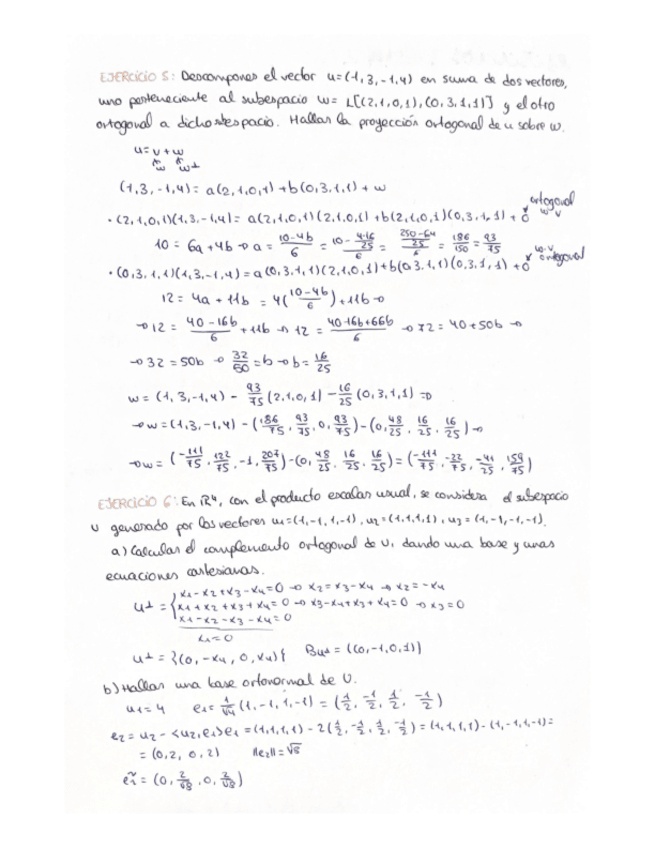 EJERCICIO 5: Descompones el vector u=(1,3,-1,4) en suma de dos vectores,
uno perteneciente al subespacio W= L[(2,1,0,1),(0,3,1,1)] y el otro
ortogonal a dicho sbespacio. Hallar la proyección ortogonal de u sobre W.
u= v + w
W W⊥
(1,3,-1,4) = a(2,1,0,1) + b(0,3,1,1) + w
ortogonal
w v
• (2,1,0,1)(1,3,-1,4) = a(2,1,0,1)(2,1,0,1) + b(2,1,0,1)(0,3,1,1) + 0
10 = 6a + 4b → a = (10-4b)/6 = (10 - 4·16/25)/6 = ((250-64)/25)/6 = 186/150 = 93/75
w v
ortogonal
• (0,3,1,1)(1,3,-1,4) = a(0,3,1,1)(2,1,0,1) + b(0,3,1,1)(0,3,1,1) + 0
12 = 4a + 11b = 4((10-4b)/6) + 11b →
→ 12 = (40-16b)/6 + 11b → 12 = (40-16b+66b)/6 → 72 = 40 + 50b →
→ 32 = 50b → 32/50 = b → b = 16/25
w = (1,3,-1,4) - 93/75 (2,1,0,1) - 16/25 (0,3,1,1) ⇒
→ w = (1,3,-1,4) - (186/75, 93/75, 0, 93/75) - (0, 48/25, 16/25, 16/25) →
→ w = (-111/75, 132/75, -1, 207/75) - (0, 48/25, 16/25, 16/25) = (-111/75, -22/75, -41/25, 159/75)
EJERCICIO 6: En ℝ⁴, con el producto escalar usual, se considera el subespacio
U generado por los vectores u1=(1,-1,1,-1), u2=(1,1,1,1), u3=(1,-1,-1,-1).
a) Calcular el complemento ortogonal de U, dando una base y unas
ecuaciones cartesianas.
x1-x2+x3-x4=0 → x2=x3-x4 → x2=-x4
U⊥ = { x1+x2+x3+x4=0 → x3-x4+x3+x4=0 → x3=0
x1-x2-x3-x4=0
x1=0
U⊥ = {(0,-x4,0,x4)} BU⊥ = {(0,-1,0,1)}
b) Hallar una base ortonormal de U.
u1=4 e1= 1/√4 (1,-1,1,-1) = (1/2, -1/2, 1/2, -1/2)
e2= u2 - <u2,e1>e1 = (1,1,1,1) - 2(1/2, -1/2, 1/2, -1/2) = (1,1,1,1) - (1,-1,1,-1) =
= (0,2,0,2) ||e2||=√8
ẽ1 = (0, 2/√8, 0, 2/√8)